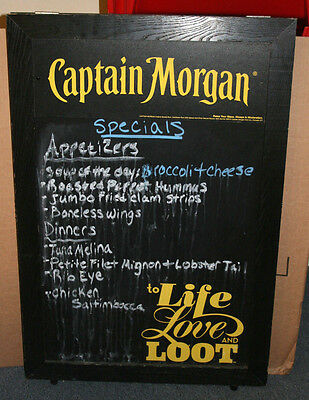 Captain Morgan®
Specials
Appetizers
-Soup of the day: Broccoli + cheese
-Roasted Pepper Hummus
-Jumbo Fried Clam Strips
-Boneless Wings
Dinners
-Tuna Melina
-Petite Filet Mignon + Lobster Tail
-Rib Eye
-Chicken
Saltimbocca
to Life
Love AND
LOOT